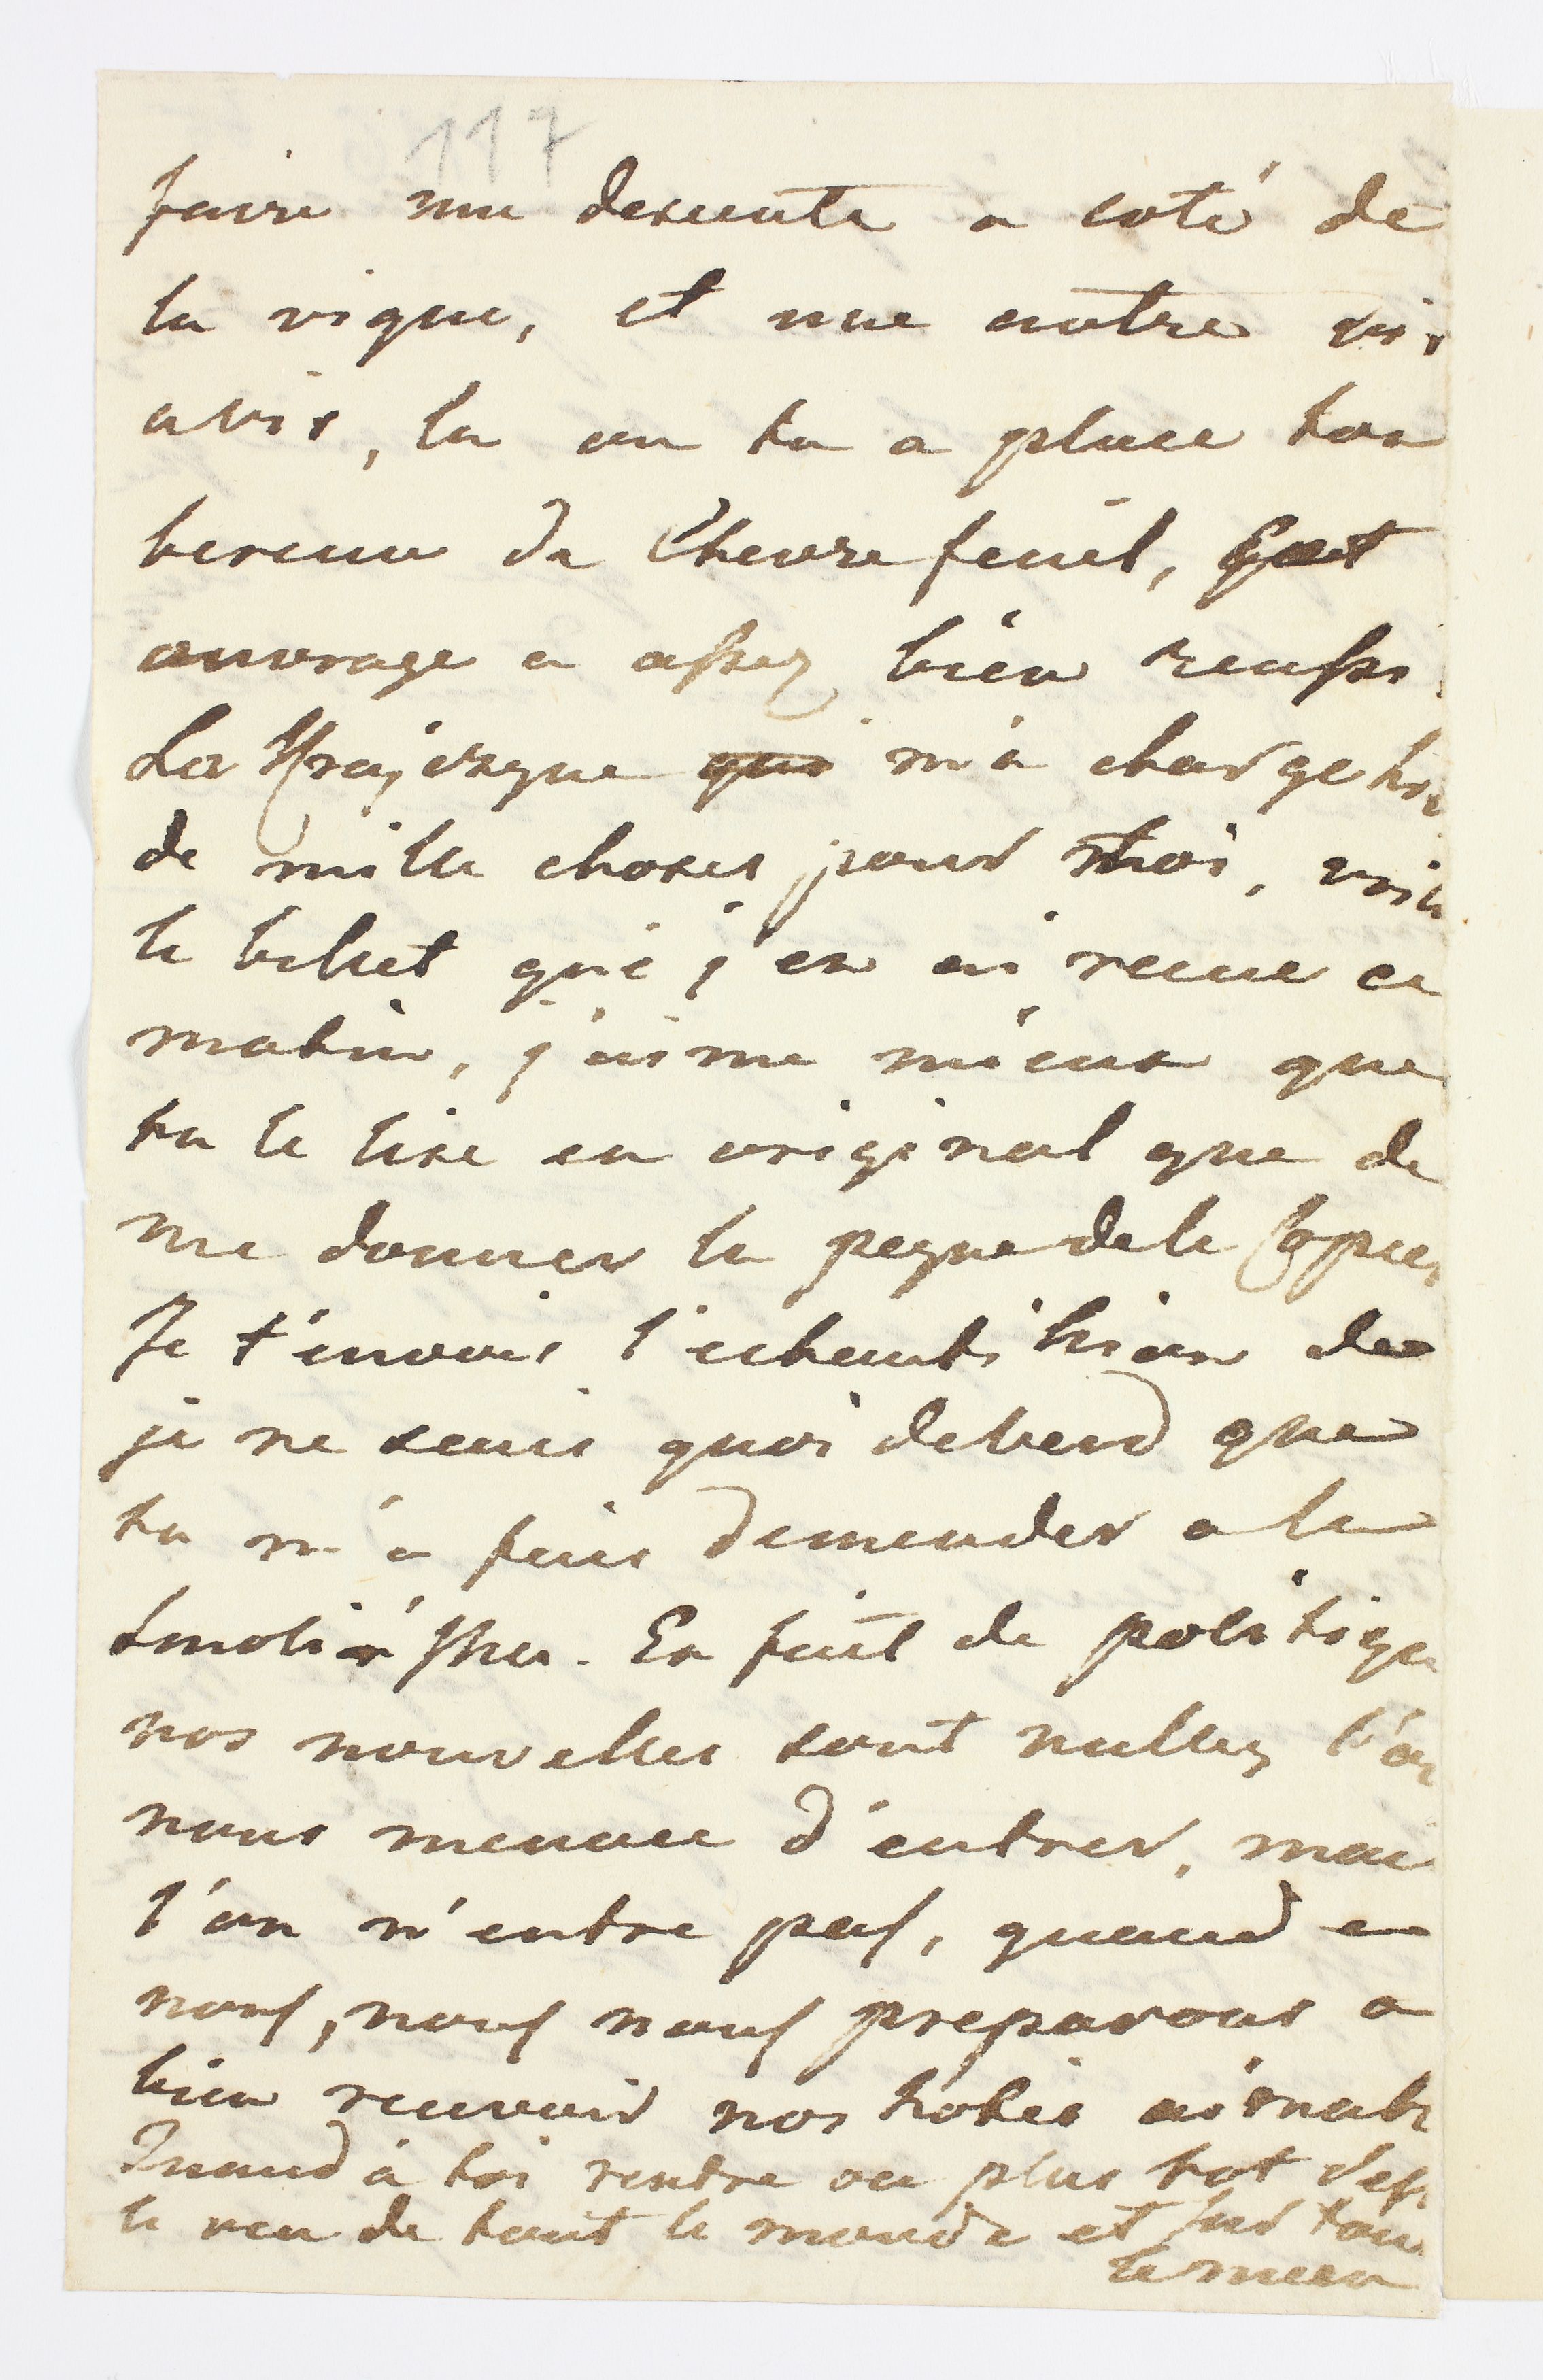 117
faire une descente a coté de
la vigne, et une autre vis
avis, la on tu a place ton
berceau de Chevrefeuil, Cet
ouvrage a assez bien reussi.
La qui m'a chargé
de mille choses pour toi, voila
le billet que j'en ai recue ce
matin, j'aime mieux que
tu le lise en original que de
me donner la pegne de le Copier,
Je t'envois l'echantilion de
je ne sais quoi que
tu m'a fais demander a la
En fait de politique
nos nouvelles sont nulles, l'on
nous menace d'entrer, mais
l'on n'entre pas, quand a
nous, nous nous preparons a
bien recevoir nos hotes aimable
Quand à toi rentre au plus tot c'est
le veu de tout le monde et sur tout
le mien